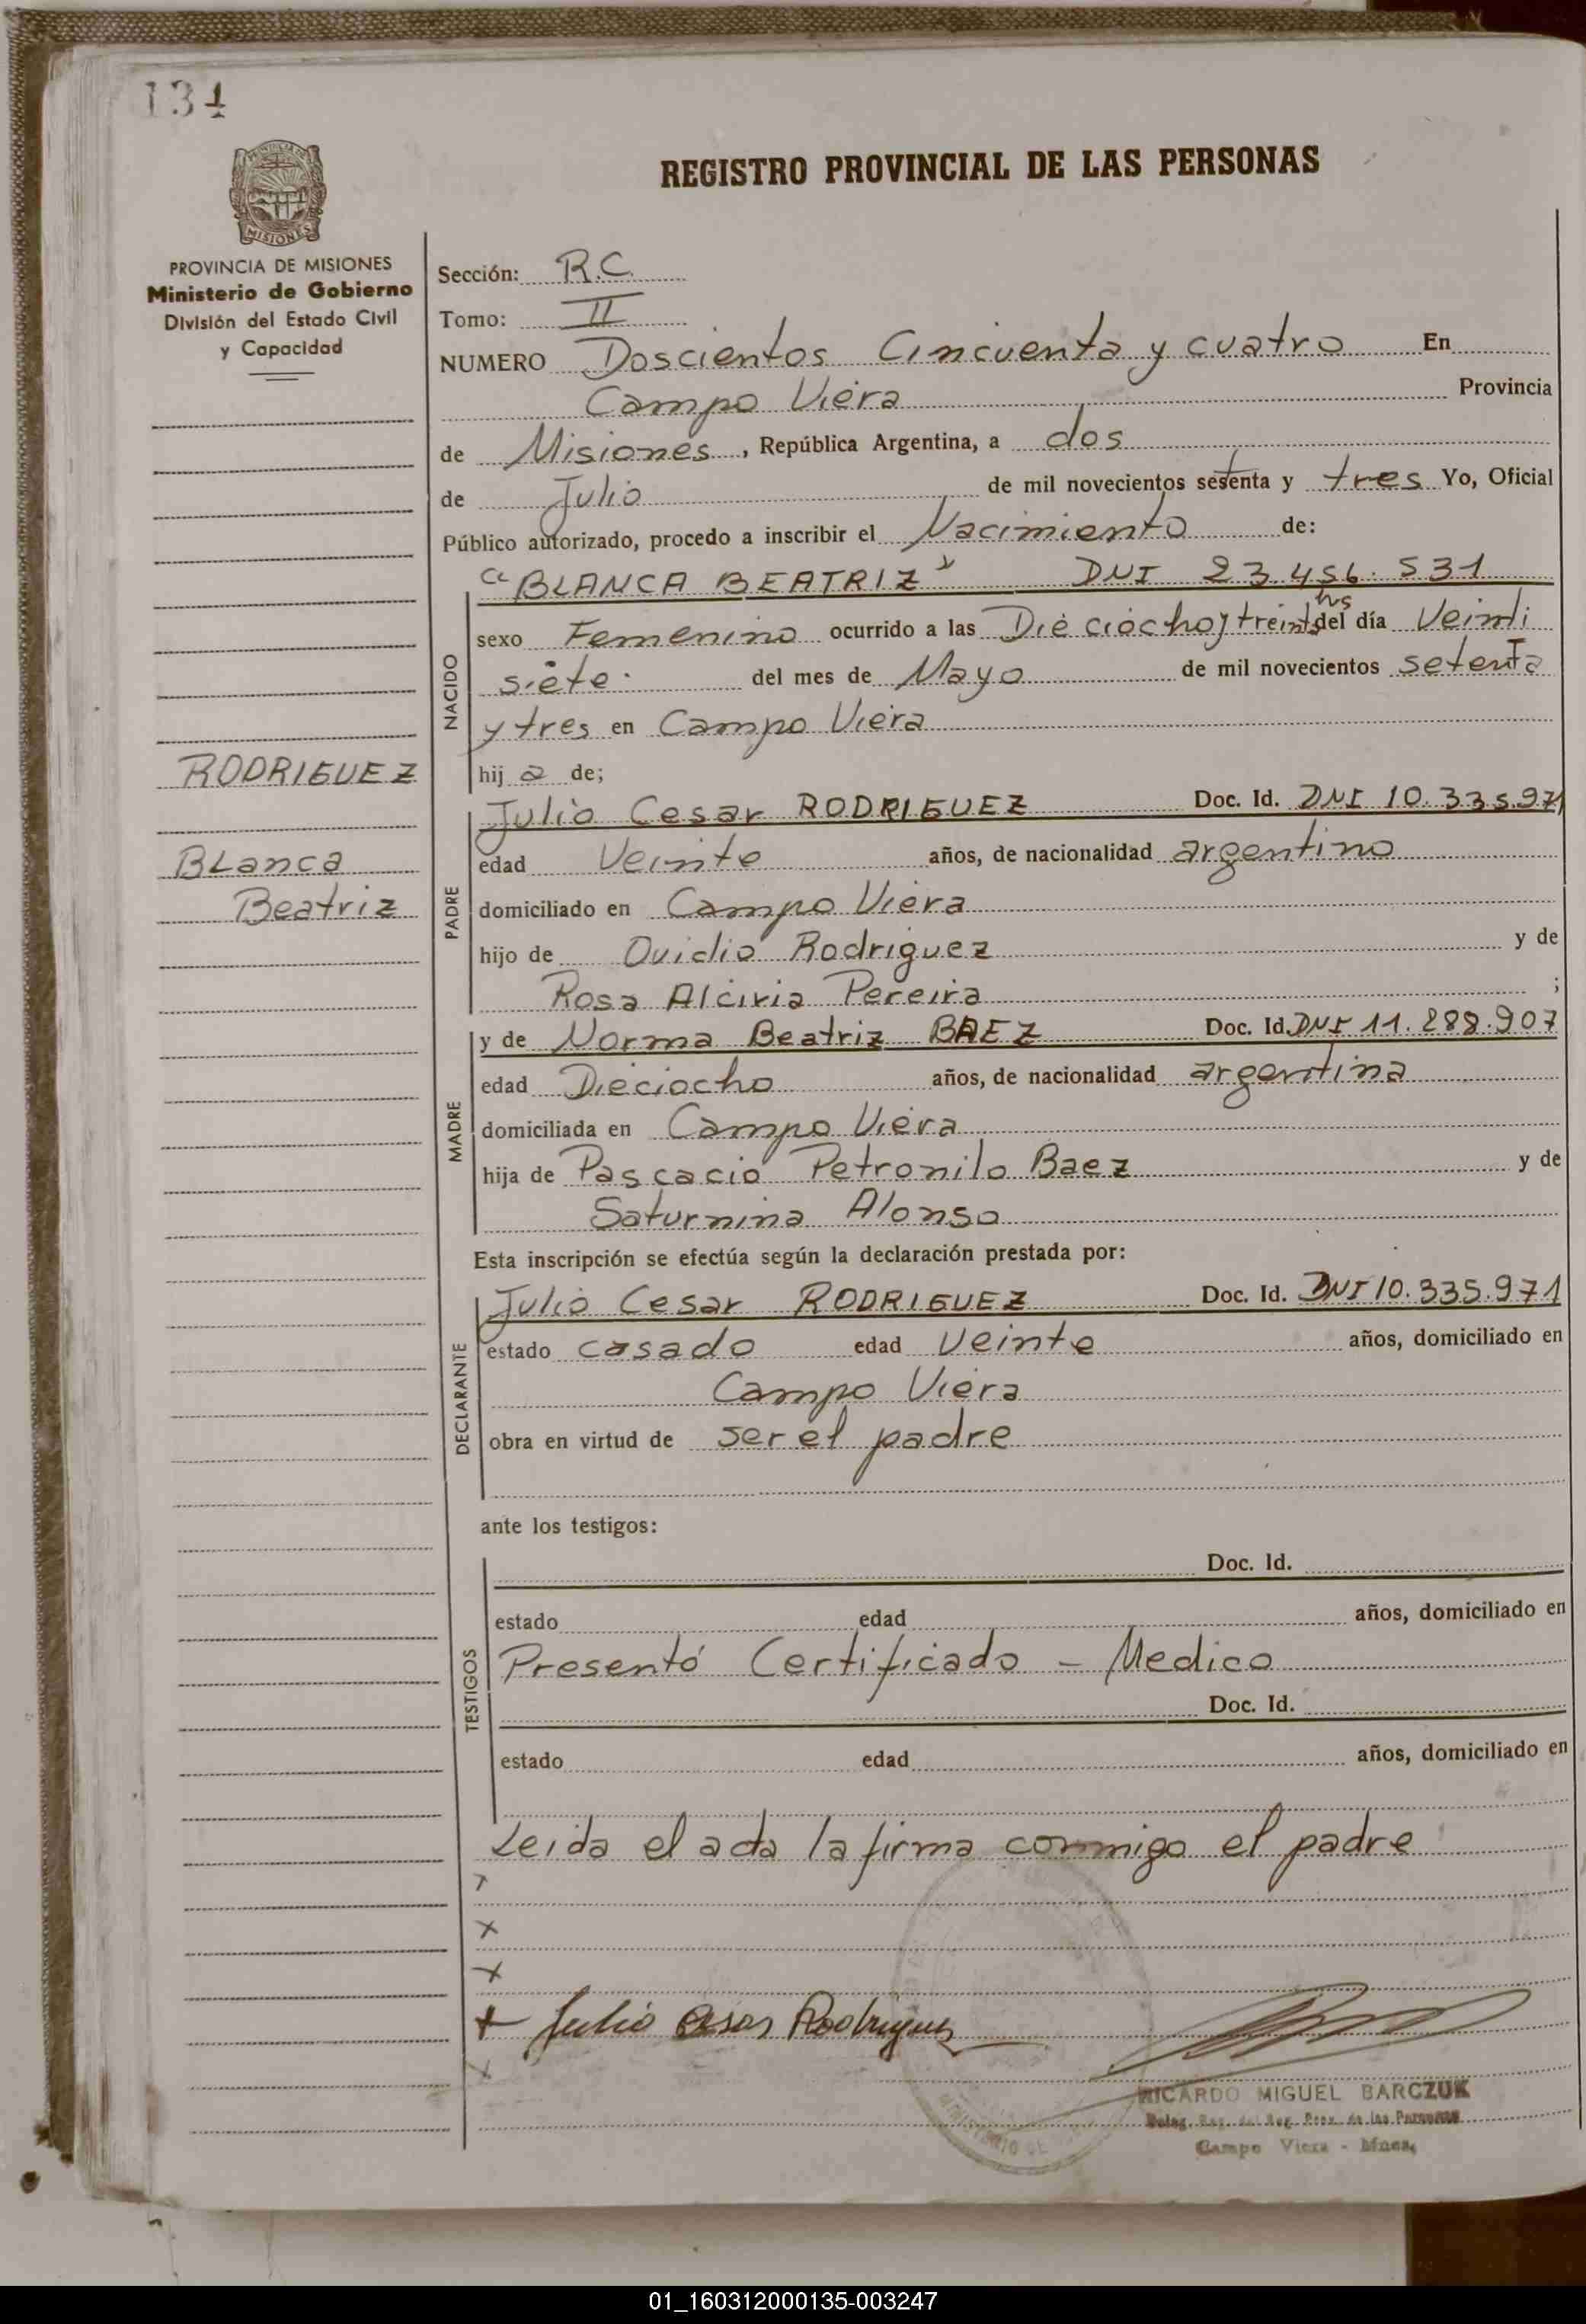 134
PROVINCIA DE MISIONES
Ministerio de Gobierno
División del Estado Civil
y Capacidad
RODRIGUEZ
BLanca
Beatriz
REGISTRO PROVINCIAL DE LAS PERSONAS
Sección: R.C.
Tomo: II
NUMERO Doscientos Cincuenta y cuatro En
Campo Viera Provincia
de Misiones, República Argentina, a dos
de Julio de mil novecientos setenta y tres Yo, Oficial
Público autorizado, procedo a inscribir el Nacimiento de:
"BLANCA BEATRIZ" DNI 23.456.531
NACIDO
sexo Femenino ocurrido a las Dieciocho y treinta hs del día Veinti
siete del mes de Mayo de mil novecientos setenta
y tres en Campo Viera
hija de;
PADRE
Julio Cesar RODRIGUEZ Doc. Id. DNI 10.335.971
edad Veinte años, de nacionalidad argentino
domiciliado en Campo Viera
hijo de Ovidio Rodriguez y de
Rosa Pereira ;
MADRE
y de Norma Beatriz BAEZ Doc. Id. DNI 11.288.907
edad Dieciocho años, de nacionalidad argentina
domiciliada en Campo Viera
hija de Pascacio Petronilo Baez y de
Saturnina Alonso
Esta inscripción se efectúa según la declaración prestada por:
DECLARANTE
Julio Cesar RODRIGUEZ Doc. Id. DNI 10.335.971
estado casado edad Veinte años, domiciliado en
Campo Viera
obra en virtud de ser el padre
ante los testigos:
TESTIGOS
Doc. Id.
estado edad años, domiciliado en
Presentó Certificado - Medico
Doc. Id.
estado edad años, domiciliado en
Leida el acta la firma conmigo el padre
Julio Cesar Rodriguez
RICARDO MIGUEL BARCZUK
Deleg. Reg. del Reg. Prov. de las Personas
Campo Viera - Mnes.
01_160312000135-003247